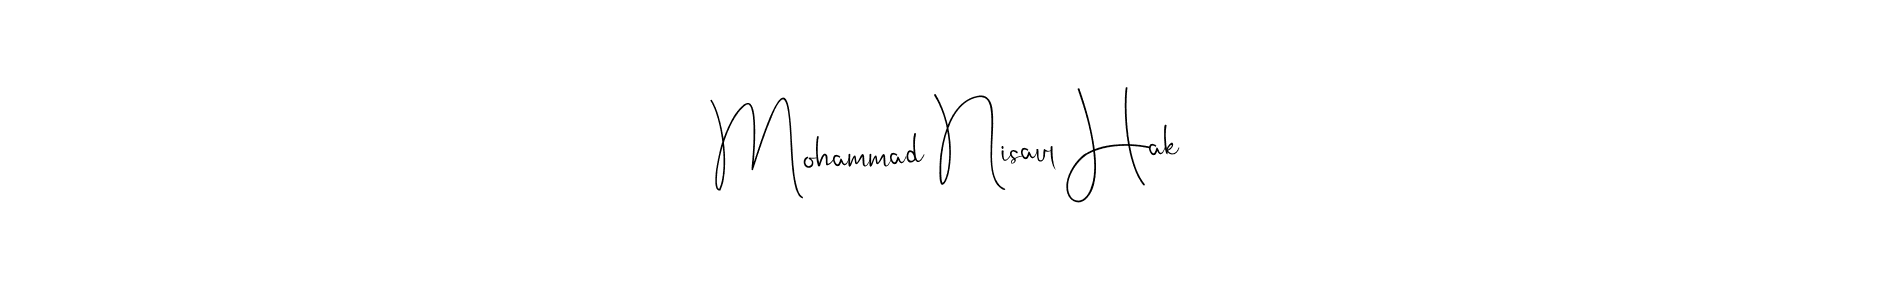 Mohammad Nisaul Hak